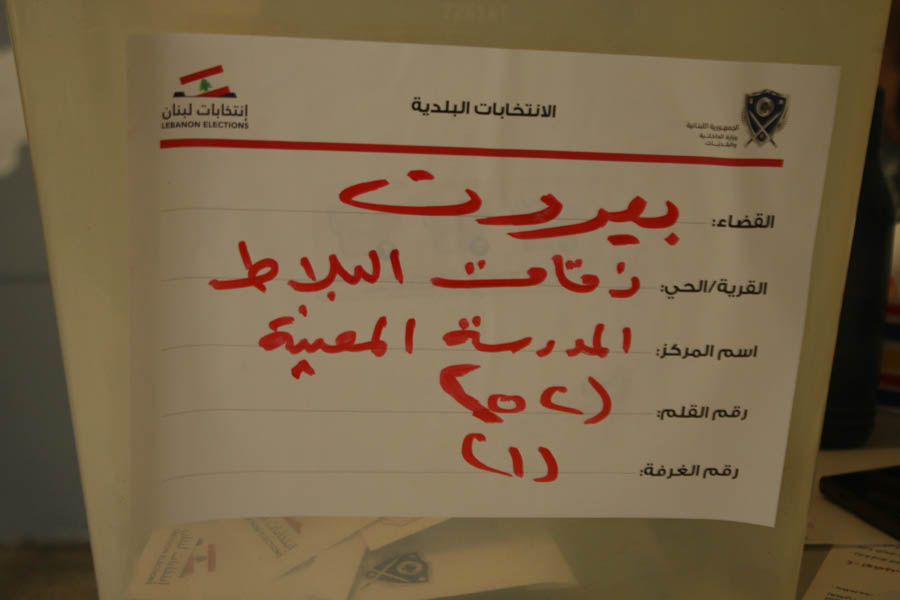 الجمهورية اللبنانية
وزارة الداخلية
والبلديات
الانتخابات البلدية
إنتخابات لبنان
LEBANON ELECTIONS
القضاء: بيروت
القرية/الحي: زقاق البلاط
اسم المركز: المدرسة المعنية
رقم القلم:
رقم الغرفة: